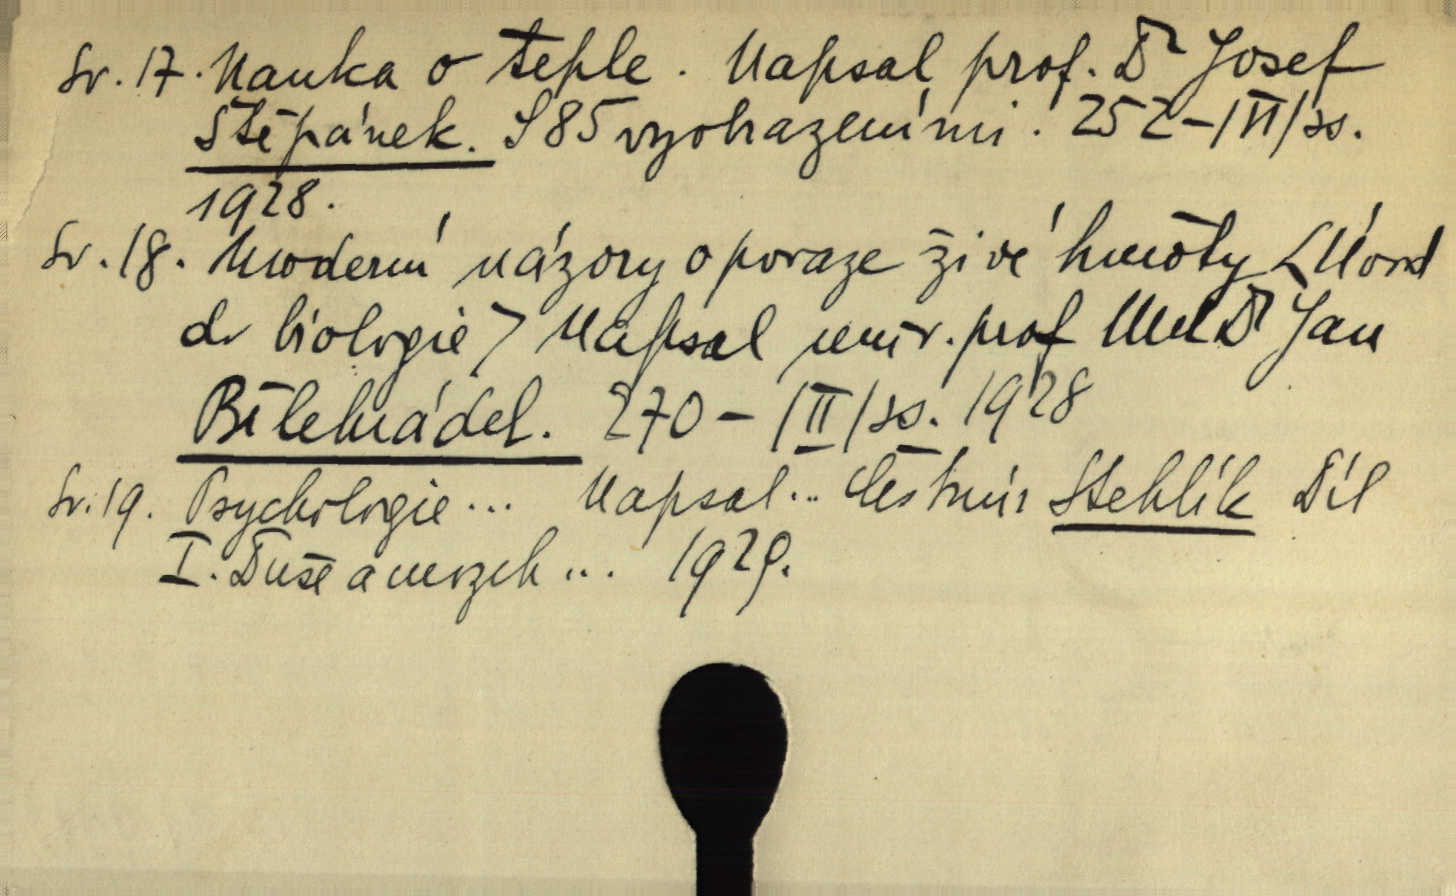 Sv. 17. Nauka o teple. Napsal prof. Dr Josef
Štěpánek. S 85 vyobrazeními. 252-/II/ss.
1928.
Sv. 18. Moderní názory o povaze živé hmoty <Úvod
do biologie> Napsal univ. prof MUDr Jan
Bělehrádek. 270 - /II/ss. 1928
Sv. 19. Psychologie... Napsal... Čestmír Stehlík Díl
I. Duše a mozek... 1929.